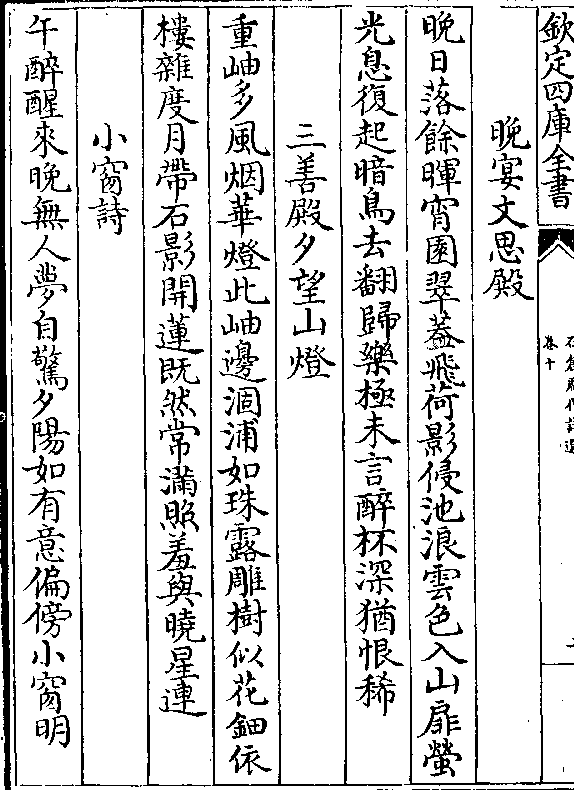 欽定四庫全書
卷十
晚宴文思殿
晚日落餘暉宵園翠葢飛荷影侵池浪雲色入山扉螢
光息復起暗鳥去翻歸樂極未言醉杯深猶恨稀
三善殿夕望山燈
重岫多風烟華燈此岫邊涸浦如珠露雕樹似花鈿依
樓雜度月帶石影開蓮既然常滿照羞與曉星連
小窗詩
午醉醒來晚無人夢自驚夕陽如有意偏傍小窗明